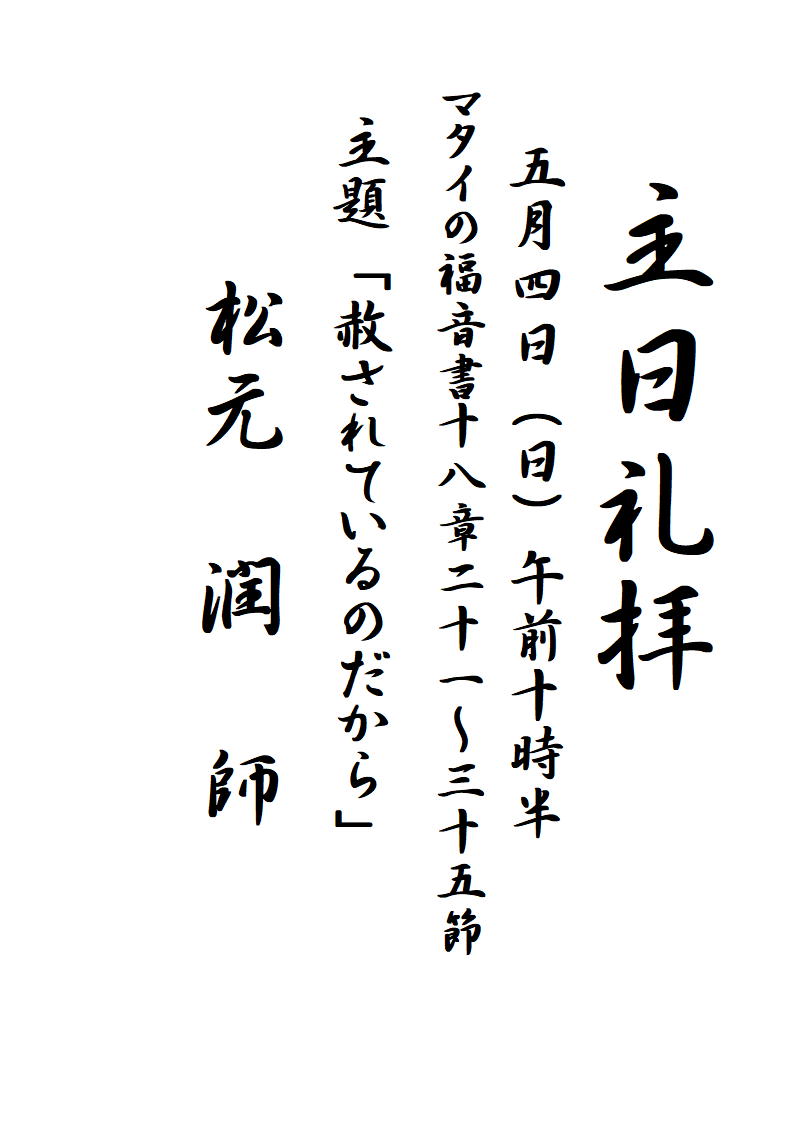 主日礼拝
五月四日（日）午前十時半
マタイの福音書十八章二十一～三十五節
主題「赦されているのだから」
松元　潤　師